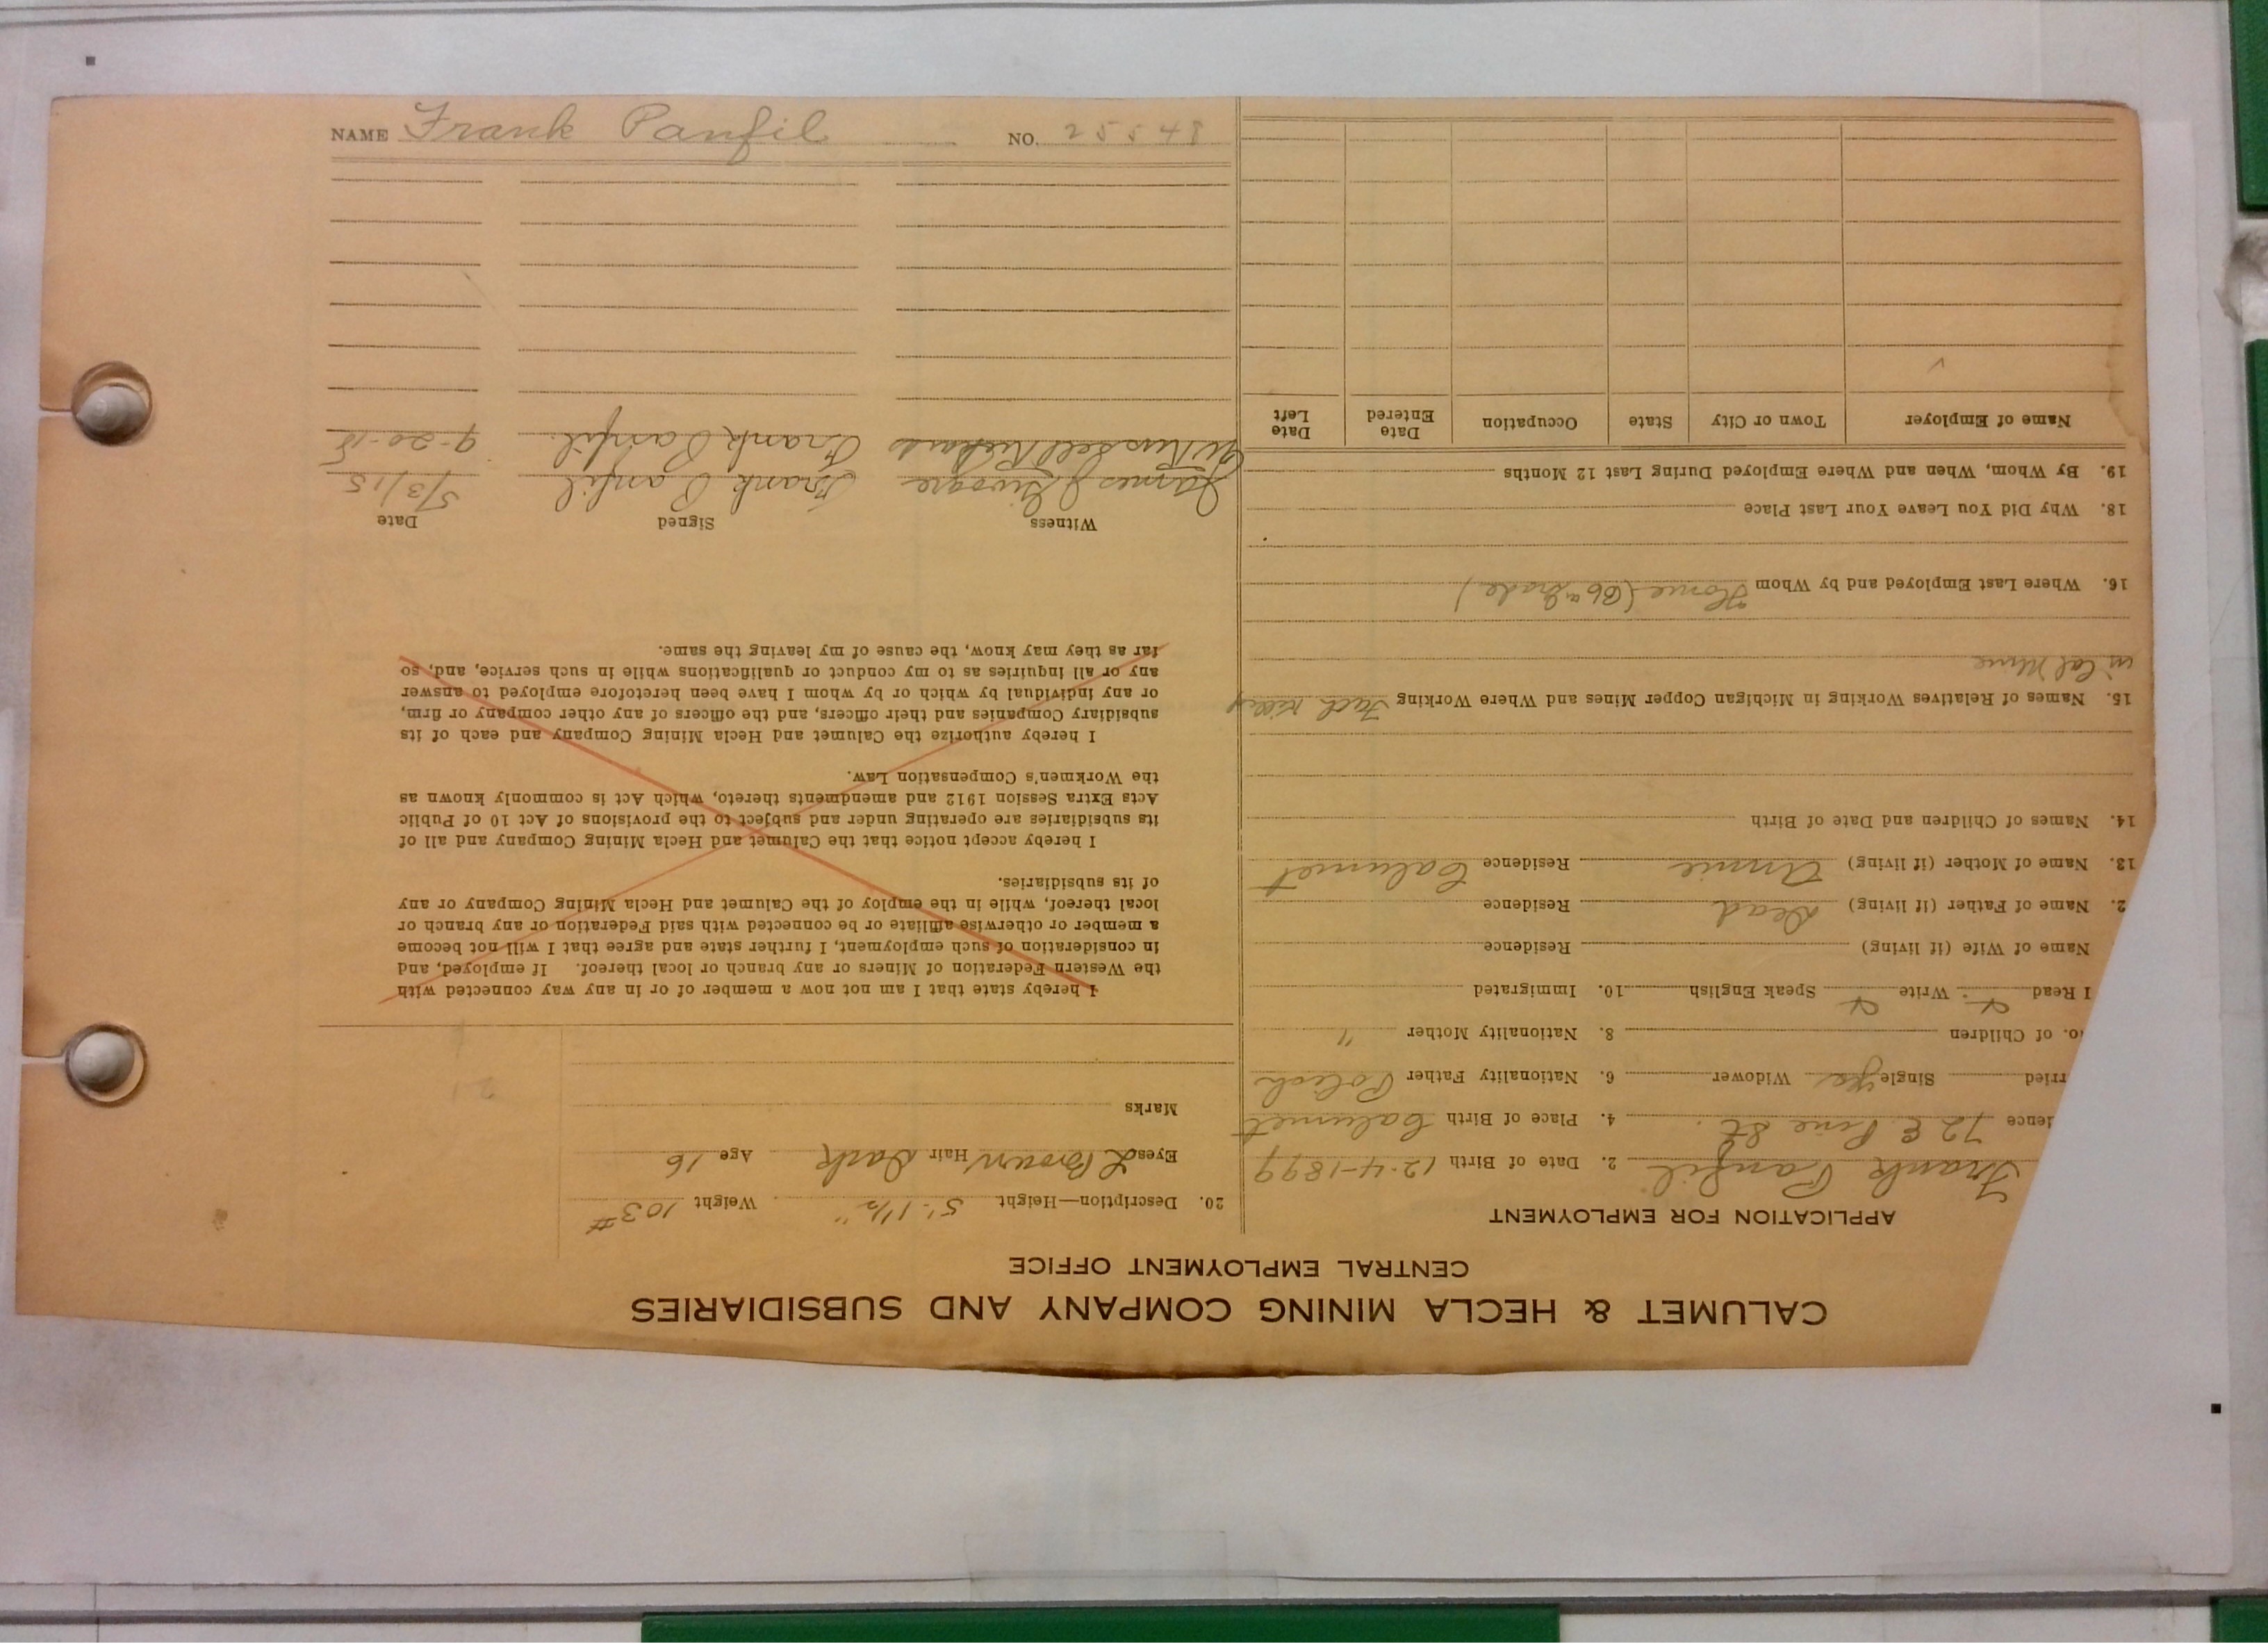 NAME Frank Panfil NO. 25548
CALUMET & HECLA MINING COMPANY AND SUBSIDIARIES
CENTRAL EMPLOYMENT OFFICE
APPLICATION FOR EMPLOYMENT
Frank Panfil 2. Date of Birth 12-4-1899
dence 72 E Pine St. 4. Place of Birth Calumet
rried Single yes Widower 6. Nationality Father Polish
o. of Children 8. Nationality Mother "
I Read Write Speak English 10. Immigrated
Name of Wife (if living) Residence
2. Name of Father (if living) Dead Residence
13. Name of Mother (if living) Annie Residence Calumet
14. Names of Children and Date of Birth
15. Names of Relatives Working in Michigan Copper Mines and Where Working
in Cal Mine
16. Where Last Employed and by Whom Home (Grade)
18. Why Did You Leave Your Last Place
19. By Whom, When and Where Employed During Last 12 Months
Name of Employer Town or City State Occupation Date Entered Date Left
20. Description—Height 5'. 1½" Weight 103#
Eyes L Brown Hair Dark Age 16
Marks
I hereby state that I am not now a member of or in any way connected with
the Western Federation of Miners or any branch or local thereof. If employed, and
in consideration of such employment, I further state and agree that I will not become
a member or otherwise affiliate or be connected with said Federation or any branch or
local thereof, while in the employ of the Calumet and Hecla Mining Company or any
of its subsidiaries.
I hereby accept notice that the Calumet and Hecla Mining Company and all of
its subsidiaries are operating under and subject to the provisions of Act 10 of Public
Acts Extra Session 1912 and amendments thereto, which Act is commonly known as
the Workmen's Compensation Law.
I hereby authorize the Calumet and Hecla Mining Company and each of its
subsidiary Companies and their officers, and the officers of any other company or firm,
or any individual by which or by whom I have been heretofore employed to answer
any or all inquiries as to my conduct or qualifications while in such service, and, so
far as they may know, the cause of my leaving the same.
Witness Signed Date
James J Frank Panfil 5/3/15
Russell Richards Frank Panfil. 9-20-15